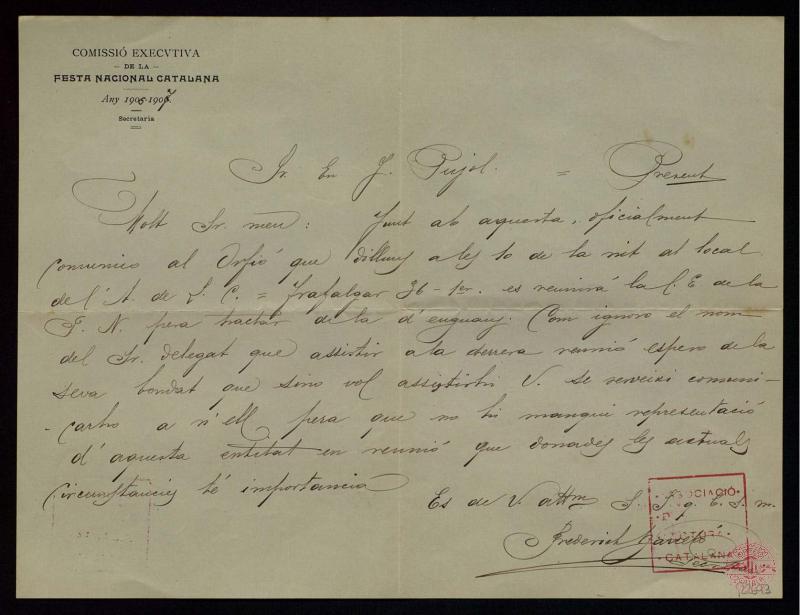 COMISSIÓ EXECVTIVA
— DE LA —
FESTA NACIONAL CATALANA
Any 1906-1907.
Secretaria
Sr. En J. Pujol. = Present
Molt Sr. meu: Junt ab aquesta, oficialment
comunico al Orfió que dilluns a les 10 de la nit al local
de l'A. de L. C. = Trafalgar 36-1er. es reunirá la C. E. de la
F. N. pera tractar de la d'enguany. Com ignoro el nom
del Sr. delegat que assistir a la derrera reunió espero de la
seva bondat que sino vol assistirhi V. se serveixi comuni-
carho a n'ell pera que no hi manqui representació
d'aquesta entitat en reunió que donades les actuals
circunstancies té importancia
Es de V. attm S. S. q. E. S. m.
Frederich
ASSOCIACIÓ
CATALANA